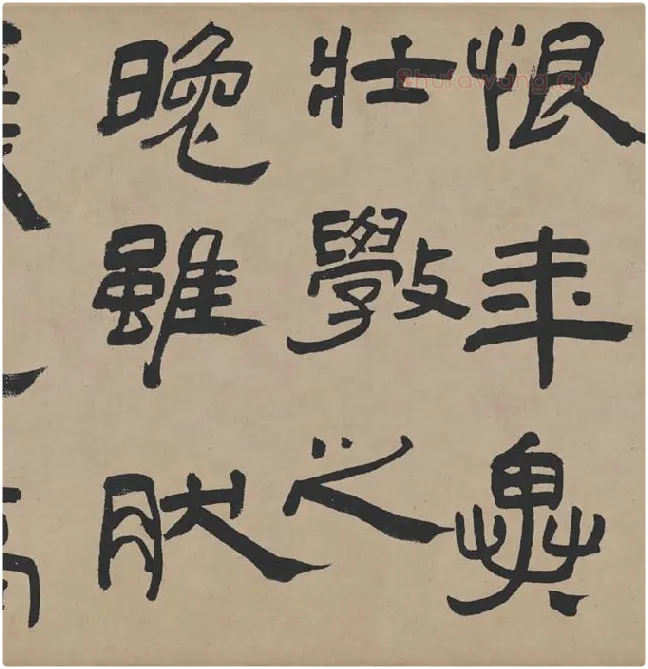 恨年異
壯斆之
晚雖肰
Shufawang.CN